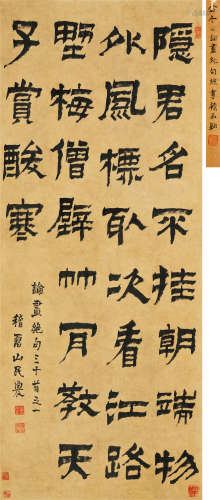 隱君名不挂朝端物
外風標取次看江路
野梅僧壁竹肎教天
子賞酸寒
論畫絕句三十首之一
稽留山民農